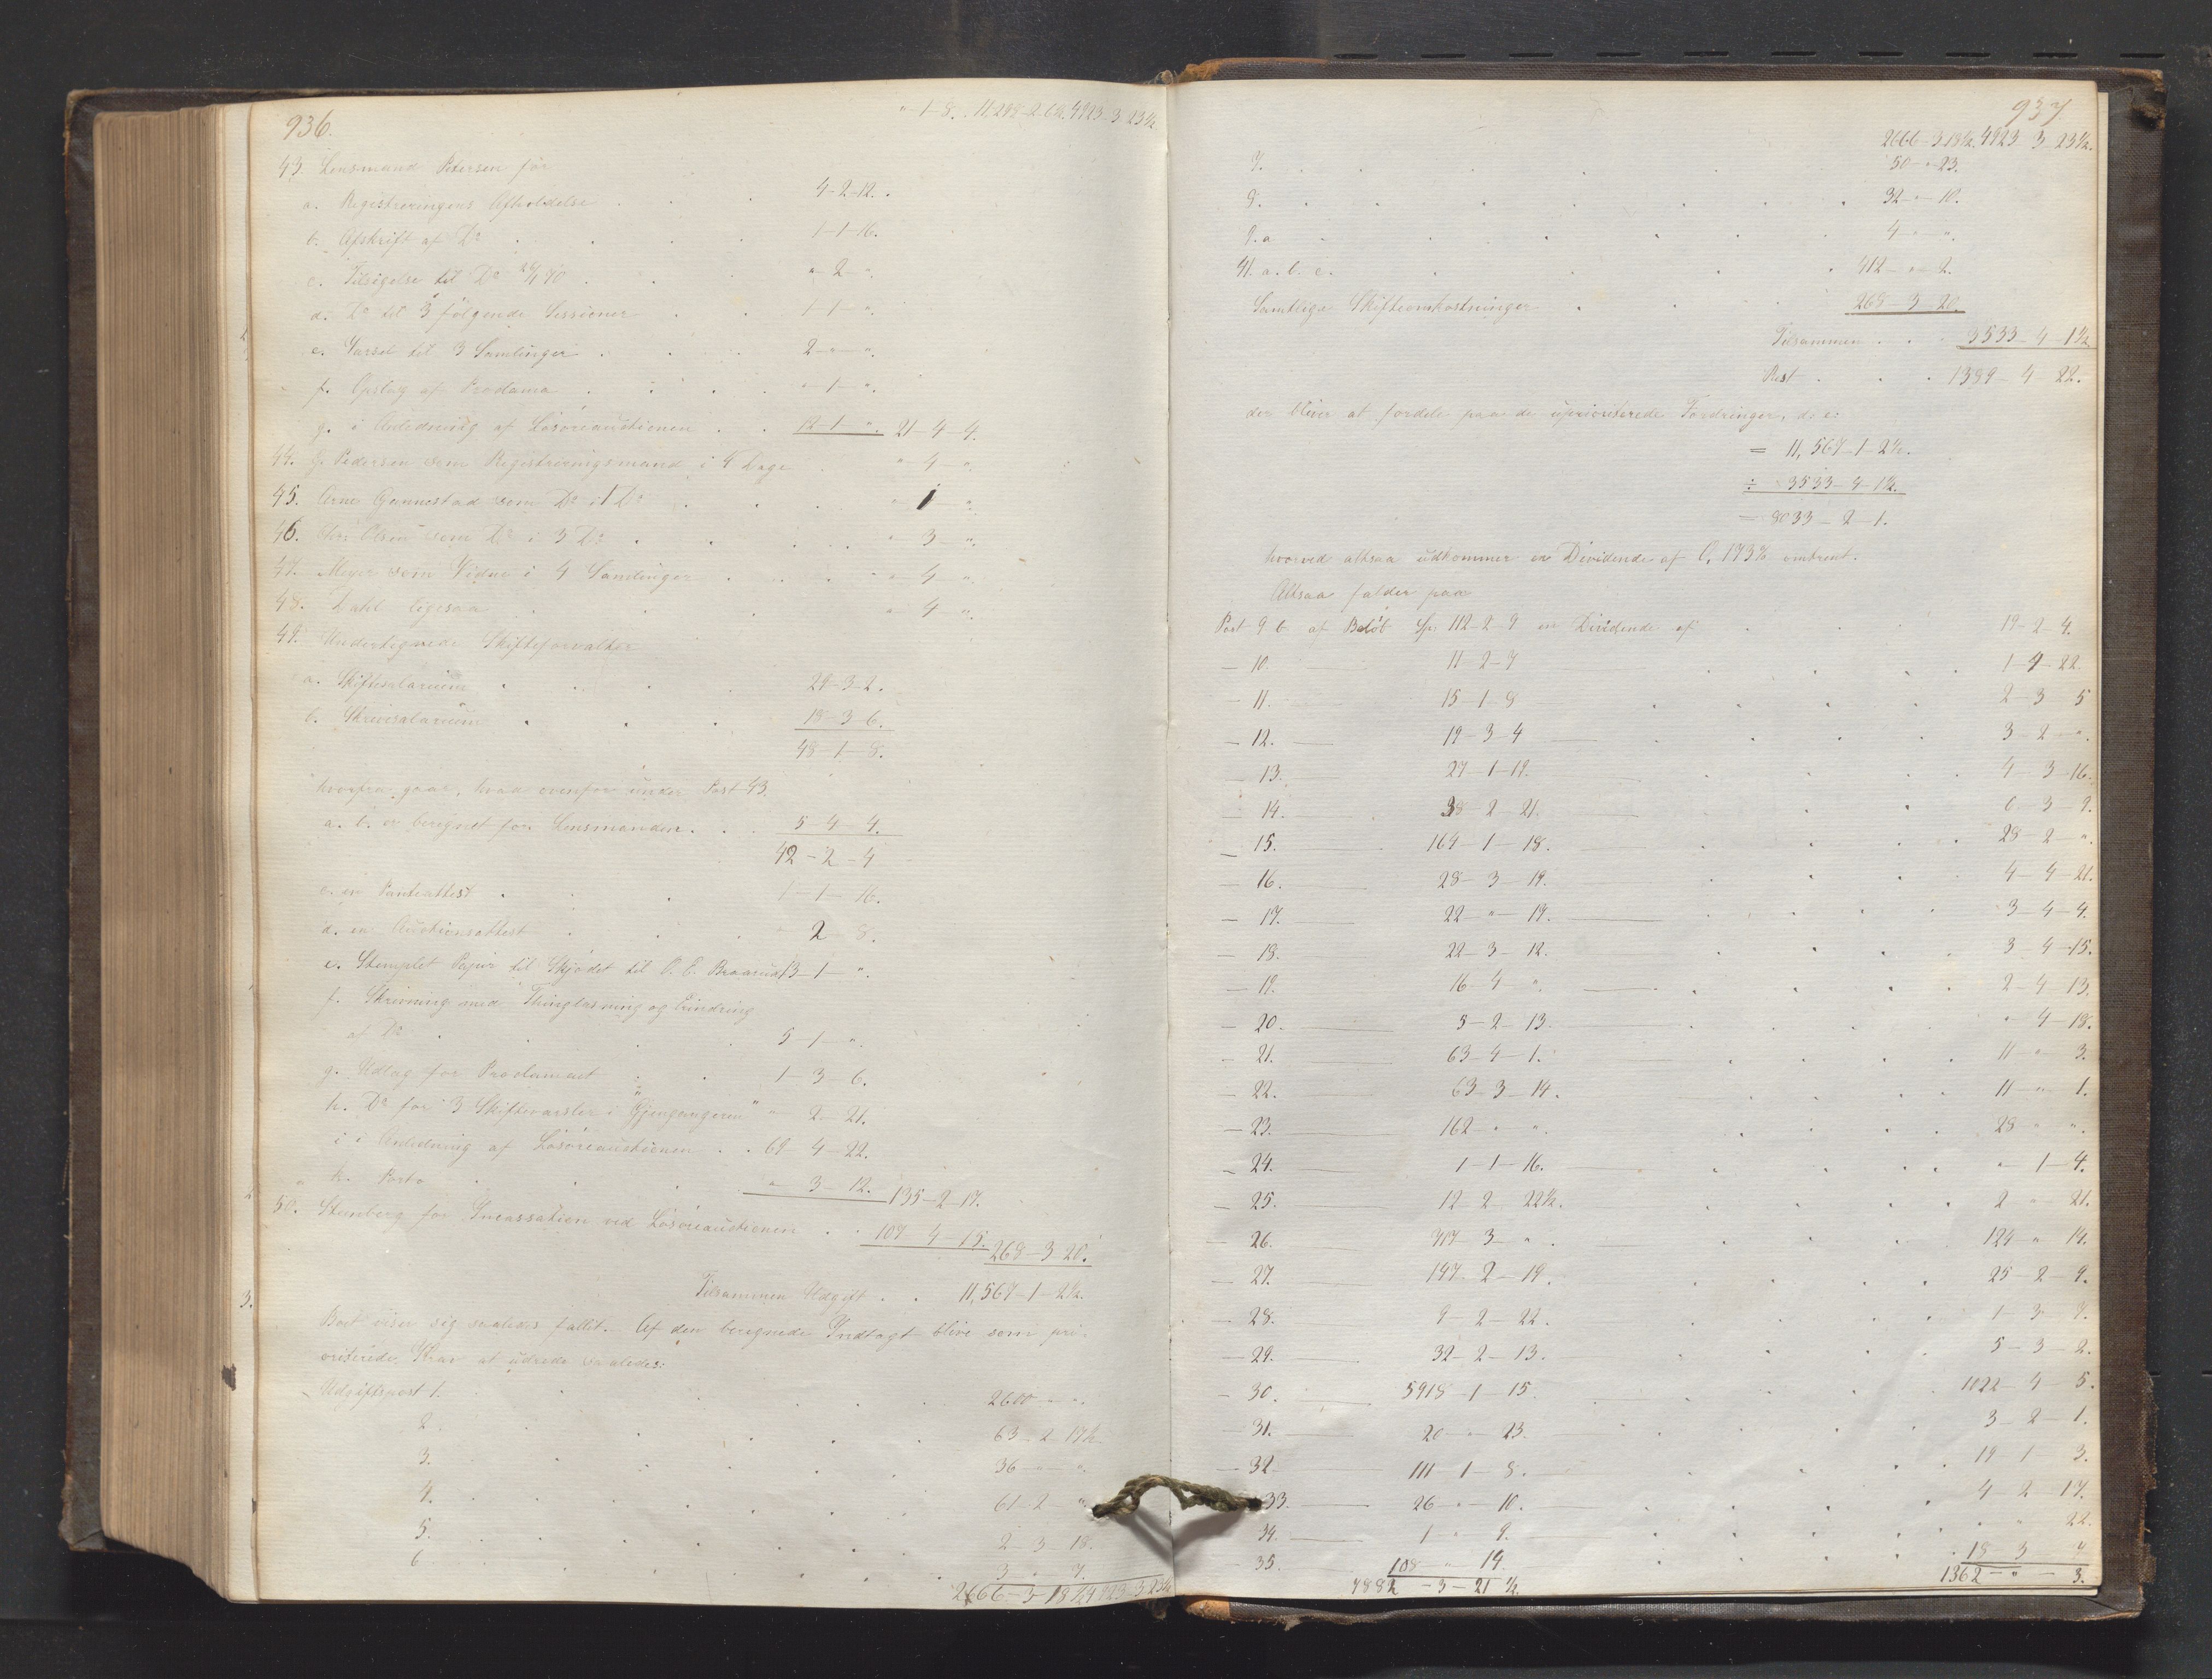 936.
" - 1 - 8. 11,298 - 2 - 6½. 4923 - 3 - 23½
43. Lensmand Petersen for
a. Registreringens Afholdelse . . . 4 - 2 - 12.
b. Afskrift af Do . . . 1 - 1 - 16.
c. Tilsigelse til Do 70 . . " - 2 - ".
d. Do til 3 følgende Sessioner . . 1 - 1 - ".
e. Varsel til 3 Samlinger . . . 2 - " - ".
f. Opslag af Proclama . . . . " - 1 - ".
g. i Anledning af Løsøreauctionen . . 12 - 1 - ". 21 - 4 - 4.
44. Pedersen som Registreringsmand i 4 Dage . " - 4 - ".
45. Arne Gannestad som Do i 1 Do . . . " - 1 - ".
46. Olsen som Do i 3 Do . . . . " - 3 - ".
47. Meyer som Vidne i 4 Samlinger . . . " - 4 - ".
48. Dahl ligesaa . . . " - 4 - ".
49. Undertegnede Skifteforvalter
a. Skiftesalarium . . . . 29 - 3 - 2.
b. Skriversalarium . . . 18 - 3 - 6.
48 - 1 - 8.
hvorfra gaar, hvad ovenfor under Post 43.
a. b. er beregnet for Lensmanden . . . 5 - 4 - 4.
42 - 2 - 4
c. en Panteattest . . . 1 - 1 - 16.
d. en Auctionsattest . . . " 2 - 8.
e. Stemplet Papir til Skjødet til O. E. Braarud 13 - 1 - ".
f. Skrivning med Thinglæsning og
af Do . . . . 5 - 1 - ".
g. Udlæg for Proclamaet . . 1 - 3 - 6.
h. Do for 3 Skiftevarsler i "Gjengangeren" " - 2 - 21.
i i Anledning af Løsøreauctionen . . 69 4 - 22.
k. Porto . . . " 3 - 12. 135 - 2 - 17.
50. Steenberg for Incassation ved Løsøreauctionen . . 107 4 - 15. 268 - 3 - 20.
Tilsammen Udgift . . 11,567 - 1 - 2½.
Boet viser sig saaledes fallit. Af den beregnede Indtægt blive som pri-
oriterede Krav at udrede saaledes:
Udgiftspost 1. . . . . 2600 - " - ".
2. . . . . 63 - 2 - 17½
3. . . . . 36 - " - ".
4. . . . . 61 - 2 - "
5. . . . . 2 - 3 - 18.
6 . . . . 3 - " - 7.
2666 - 3 - 18½ 4923 - 3 - 23½
937.
2666 - 3 - 18½. 4923 - 3 - 23½.
7. . . . . 50 - " - 23.
8. . . . . 32 - " - 10.
9. a . . . . 4 - " - ".
41. a. b. c. . . . . 412 - " - 2.
Samtlige Skifteomkostninger . . . 268 - 3 - 20.
Tilsammen . . . 3533 - 4 - 1½.
Rest . . . 1389 - 4 - 22.
der bliver at fordele paa de uprioriterede Fordringer, d: e:
= 11,567 - 1 - 2½.
÷ 3533 - 4 - 1½.
= 8033 - 2 - 1.
hvorved altsaa udkommer en Dividende af 0,173% omtrent.
Altsaa falder paa
Post 9 b. af Beløb Sp. 112 - 2 - 9 en Dividende af . . 19 - 2 - 4.
— 10. — 11 - 2 - 7 . . . 1 - 4 - 22.
— 11. 15 - 1 - 8 . . . 2 - 3 5
— 12. — 19 - 3 - 4 — . . . 3 - 2 - ".
— 13. 27 - 1 - 19. — . . . 4 - 3 - 16.
— 14. — 38 - 2 - 21. — . . . 6 - 3 - 9.
— 15. — 164 - 1 - 18. — . . . 28 - 2 - ".
— 16. — 28 - 3 - 19. — . . . 4 - 4 - 21.
— 17. — 22 - " - 19. — . . . 3 - 4 - 4.
— 18. — 22 - 3 - 12. — . . . 3 - 4 - 15.
— 19. — 16 - 4 - ". — . . . 2 - 4 - 13.
— 20. — 5 - 2 - 13. — . . . " 4 - 18.
— 21. — 63 - 4 - 1. — . . . 11 - " - 3.
— 22. — 63 - 3 - 14. . . . 11 - " - 1.
— 23. — 162 - " - ". . . . 28 " ".
— 24. — 1 - 1 - 16. — . . . " - 1 - 4.
— 25. — 12 - 2 - 22½. . . . 2 " - 21.
— 26. — 717 - 3 - ". . . . 124 - " - 14.
— 27. — 147 - 2 - 19. . . . 25 - 2 - 9.
— 28. — 9 - 2 - 22. — . . . 1 - 3 - 7.
— 29. — 32 - 2 - 13. — . . . 5 - 3 - 2.
— 30. — 5918 - 1 - 15. . . . 1022 - 4 - 5.
— 31. — 20 - " - 23. — . . . 3 - 2 - 1.
— 32 — 111 - 1 - 8. — . . . 19 - 1 - 3.
33. — 26 - " - 10. — . . . 4 - 2 - 17.
34. — 1 - " - 9. — . . . " " 22.
— 35. 108 - " - 14. . . . 18 - 3 - "
7882 - 3 - 21½. 1362 - " - 3.